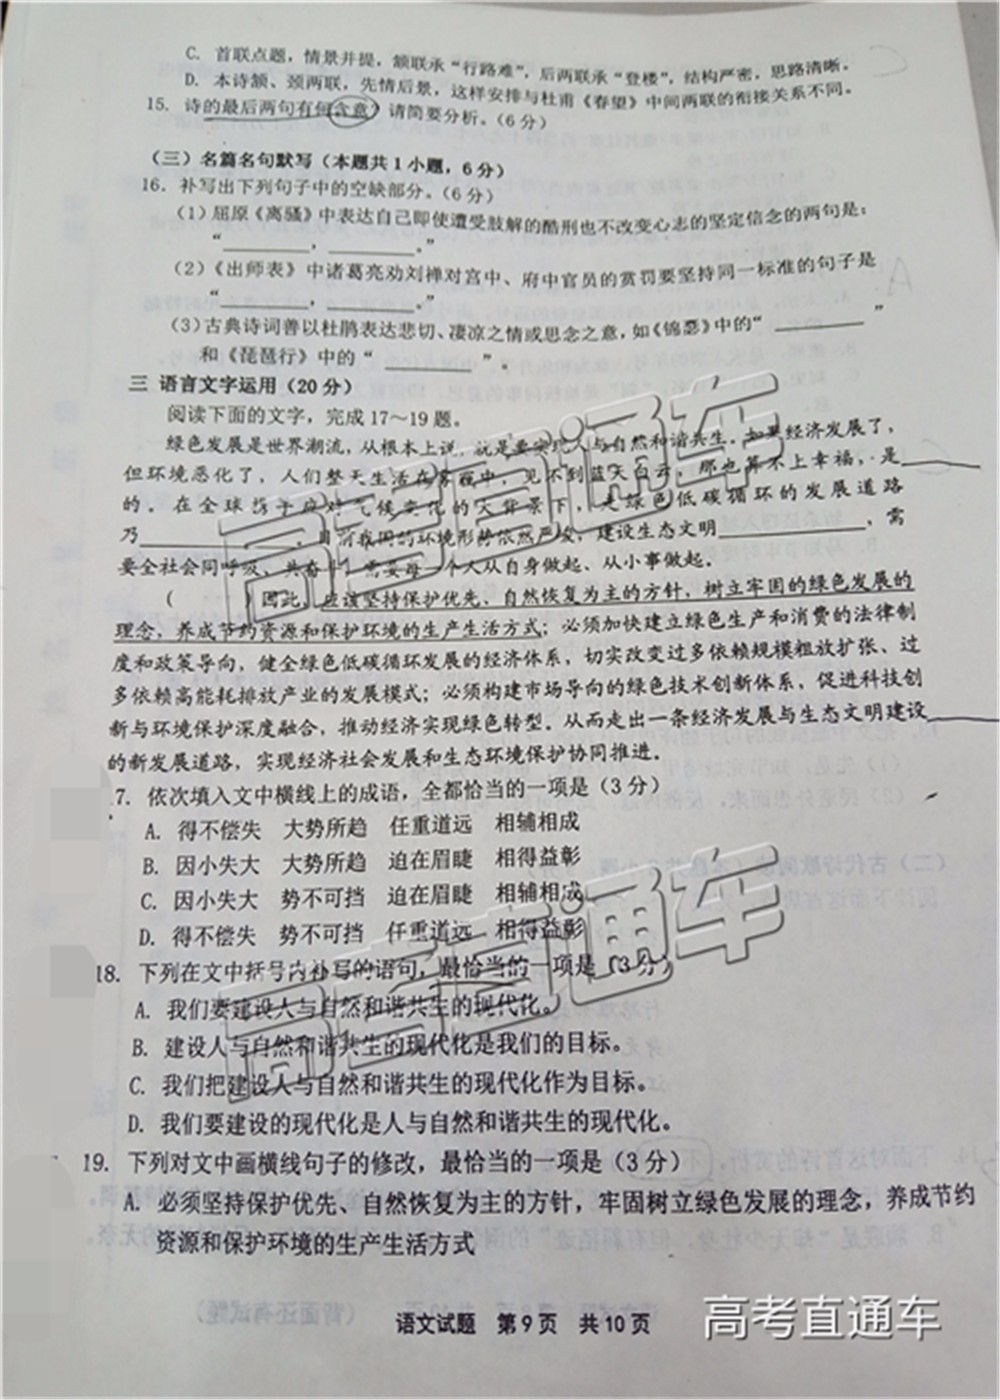 C. 首联点题，情景并提，颔联承“行路难”，后两联承“登楼”，结构严密，思路清晰。
D. 本诗颔、颈两联，先情后景，这样安排与杜甫《春望》中间两联的衔接关系不同。
15. 诗的最后两句有何含意？请简要分析。（6分）
（三）名篇名句默写（本题共1小题，6分）
16. 补写出下列句子中的空缺部分。（6分）
（1）屈原《离骚》中表达自己即使遭受肢解的酷刑也不改变心志的坚定信念的两句是：
“________，________。”
（2）《出师表》中诸葛亮劝刘禅对宫中、府中官员的赏罚要坚持同一标准的句子是
“________，________。”
（3）古典诗词善以杜鹃表达悲切、凄凉之情或思念之意，如《锦瑟》中的“________”
和《琵琶行》中的“________”。
三 语言文字运用（20分）
阅读下面的文字，完成17～19题。
绿色发展是世界潮流，从根本上说，就是要实现人与自然和谐共生。如果经济发展了，
但环境恶化了，人们整天生活在雾霾中，见不到蓝天白云，那也算不上幸福，是________
的。在全球携手应对气候变化的大背景下，走绿色低碳循环的发展道路
乃________，目前我国的环境形势依然严峻，建设生态文明________，需
要全社会同呼吸、共奋斗，需要每一个人从自身做起、从小事做起。
（ ）因此，应该坚持保护优先、自然恢复为主的方针，树立牢固的绿色发展的
理念，养成节约资源和保护环境的生产生活方式；必须加快建立绿色生产和消费的法律制
度和政策导向，健全绿色低碳循环发展的经济体系，切实改变过多依赖规模粗放扩张、过
多依赖高能耗排放产业的发展模式；必须构建市场导向的绿色技术创新体系，促进科技创
新与环境保护深度融合，推动经济实现绿色转型。从而走出一条经济发展与生态文明建设________
的新发展道路，实现经济社会发展和生态环境保护协同推进。
17. 依次填入文中横线上的成语，全都恰当的一项是（3分）
A. 得不偿失 大势所趋 任重道远 相辅相成
B. 因小失大 大势所趋 迫在眉睫 相得益彰
C. 因小失大 势不可挡 迫在眉睫 相辅相成
D. 得不偿失 势不可挡 任重道远 相得益彰
18. 下列在文中括号内补写的语句，最恰当的一项是（3分）
A. 我们要建设人与自然和谐共生的现代化。
B. 建设人与自然和谐共生的现代化是我们的目标。
C. 我们把建设人与自然和谐共生的现代化作为目标。
D. 我们要建设的现代化是人与自然和谐共生的现代化。
19. 下列对文中画横线句子的修改，最恰当的一项是（3分）
A. 必须坚持保护优先、自然恢复为主的方针，牢固树立绿色发展的理念，养成节约
资源和保护环境的生产生活方式
语文试题 第9页 共10页
高考直通车
高考直通车
高考直通车